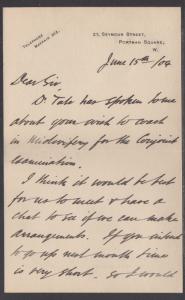 TELEPHONE
MAYFAIR
25, SEYMOUR STREET,
PORTMAN SQUARE,
W.
June 15th/04
Dear Sir,
Dr Tate has spoken to me
about your wish to coach
in Midwifery for the Conjoint
Examination.
I think it would be best
for us to meet & have a
chat to see if we can make
arrangements. If you intend
to go up next month time
is very short. So I would